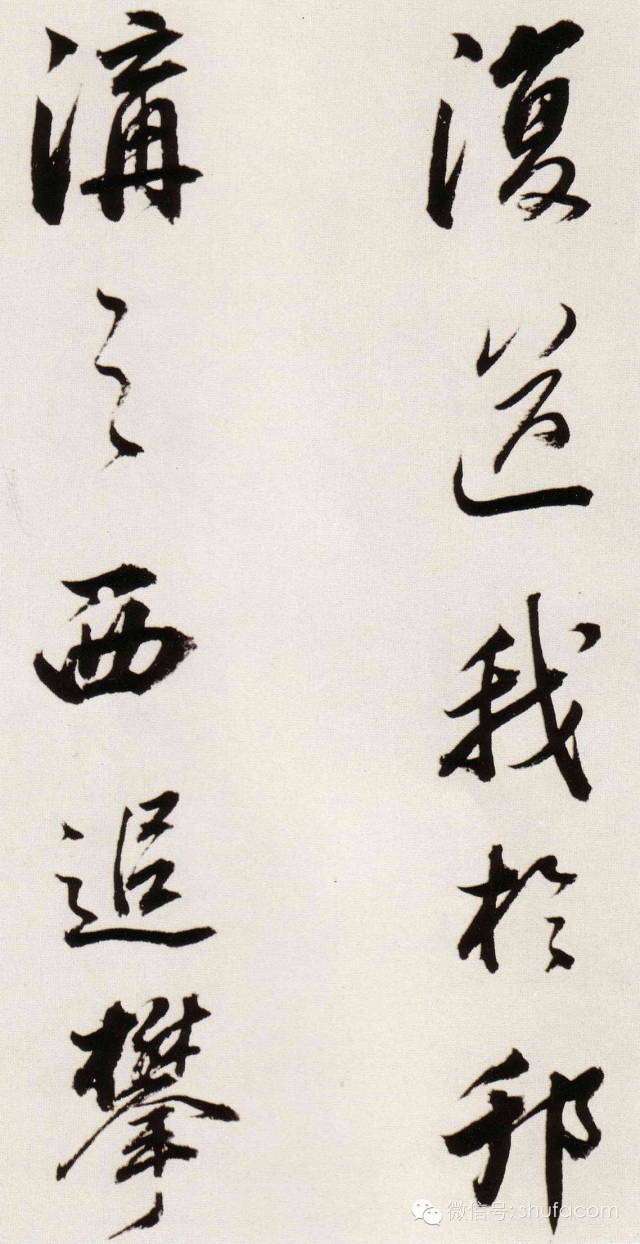 復道我於邗
溝之西追攀
微信号: shufacom